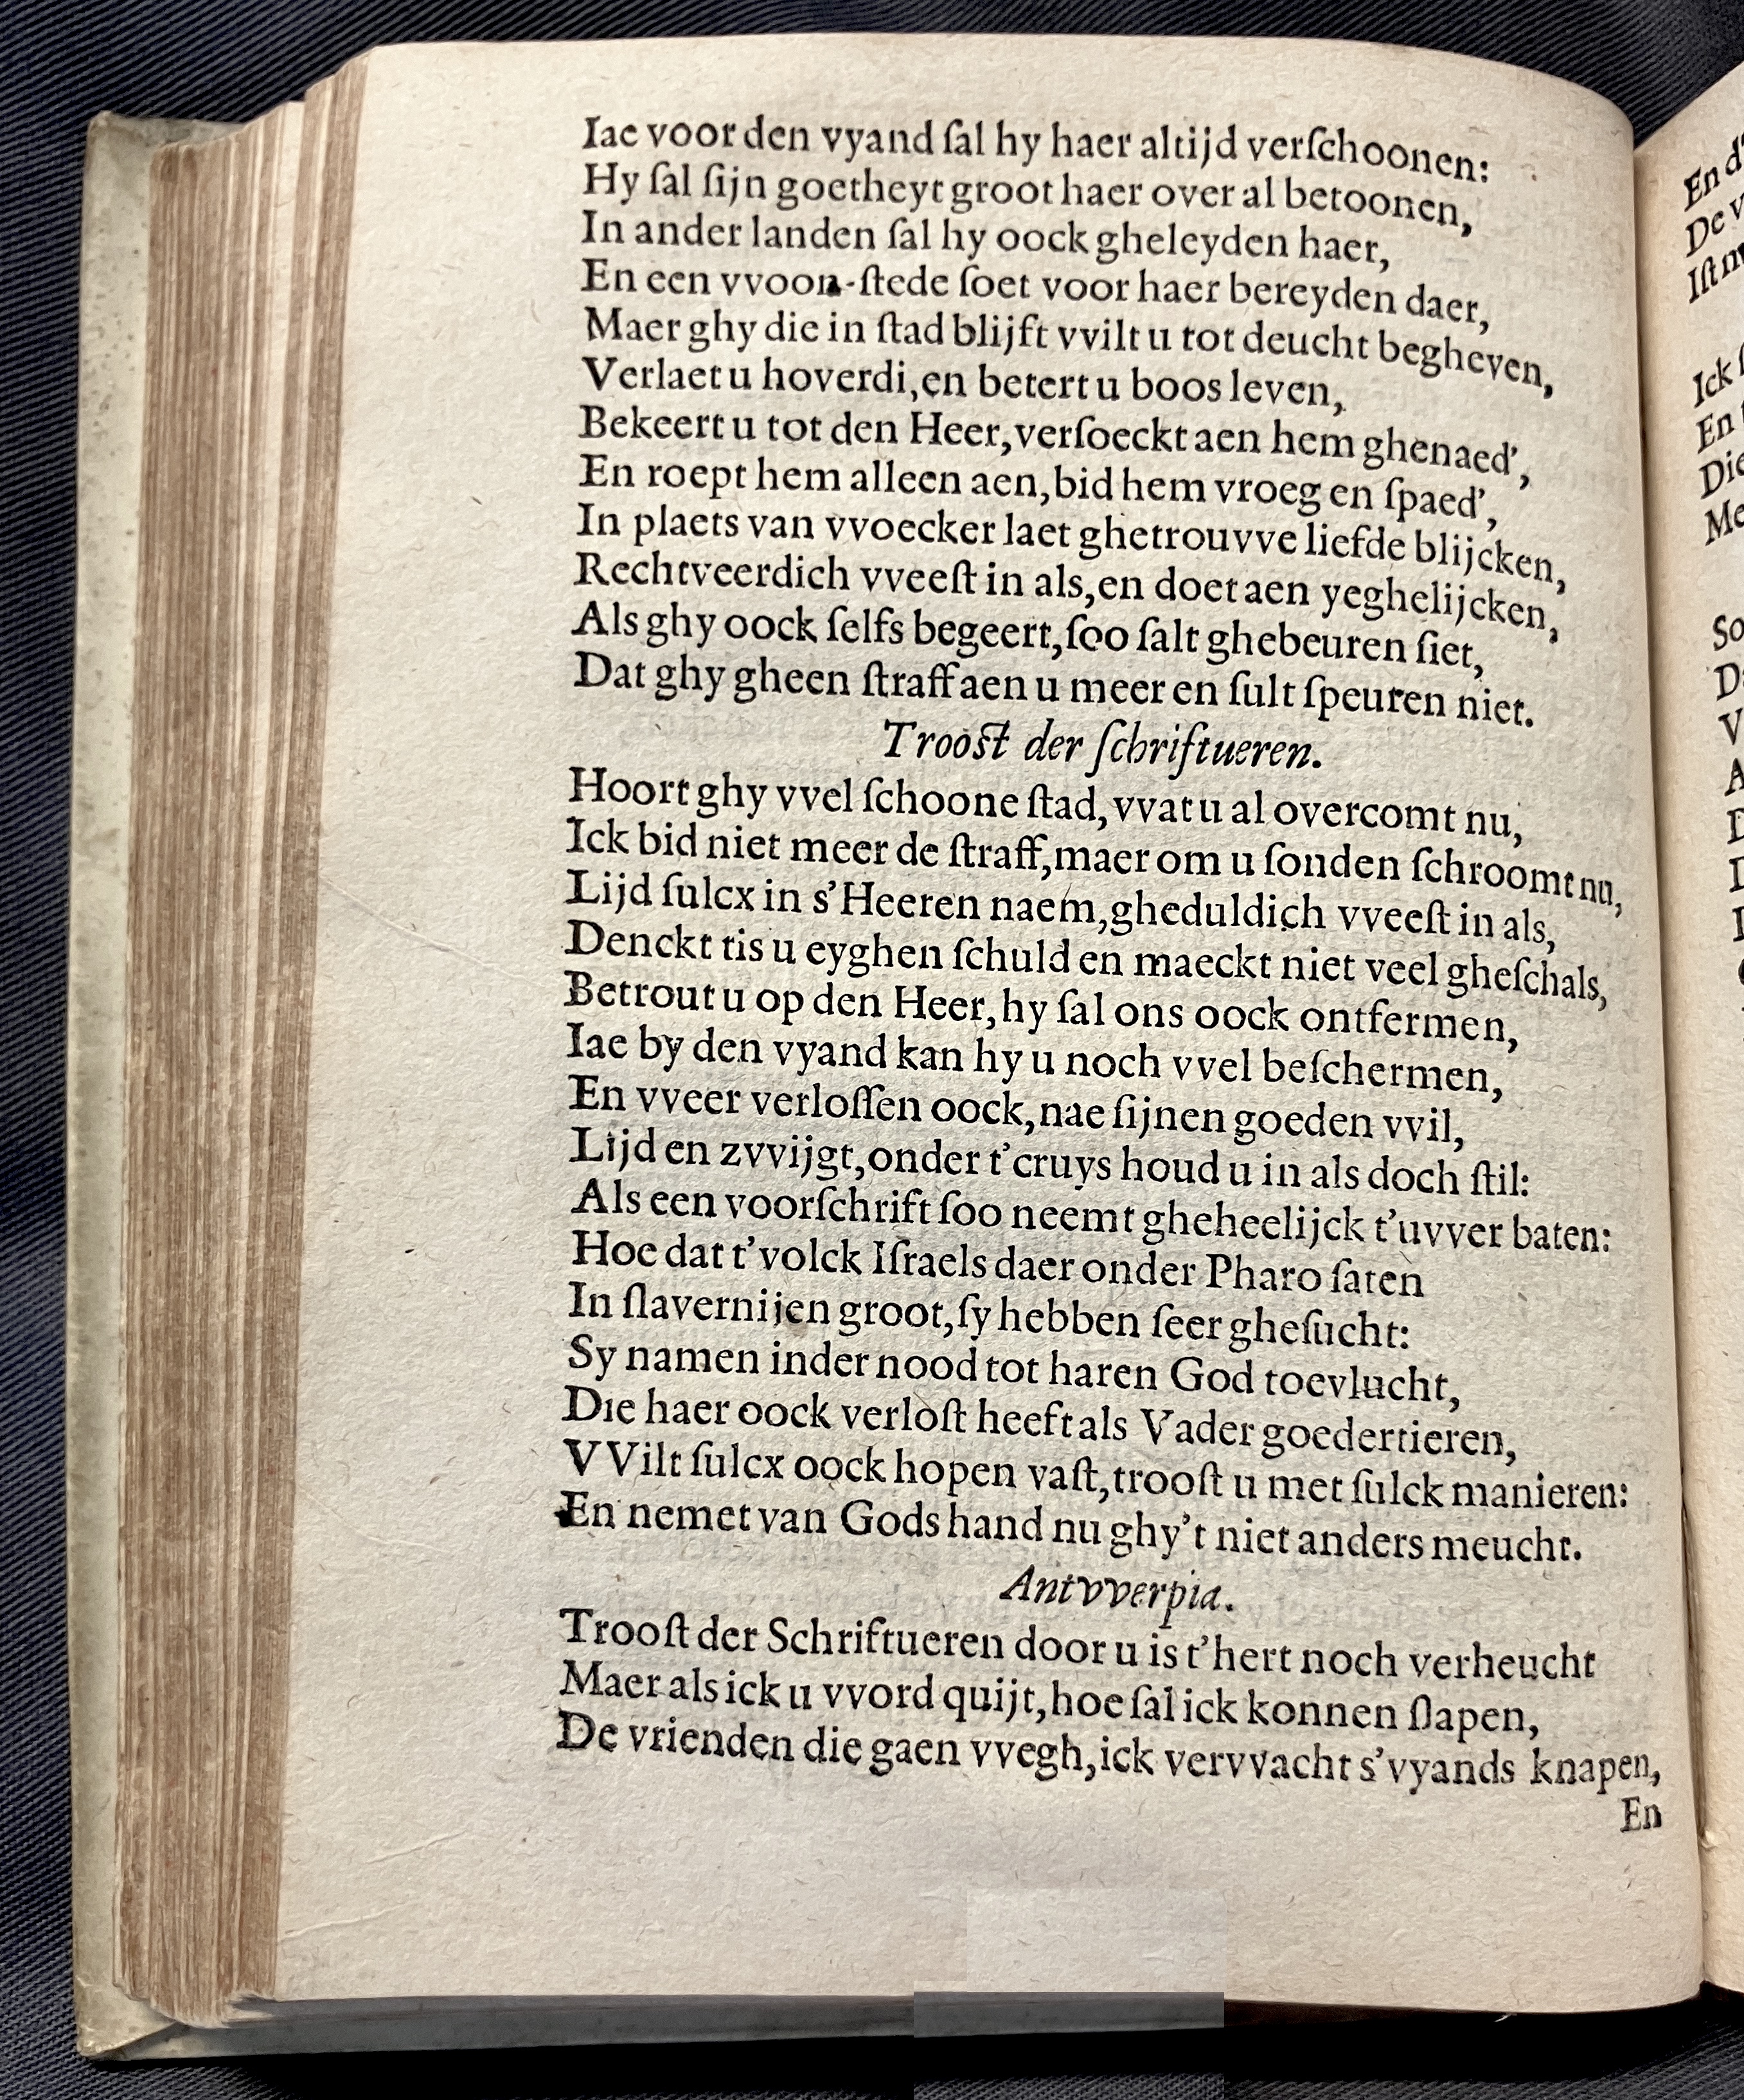 Iae voor den vyand ſal hy haer altijd verſchoonen:
Hy ſal ſijn goetheyt groot haer over al betoonen,
In ander landen ſal hy oock gheleyden haer,
En een vvoon-ſtede ſoet voor haer bereyden daer,
Maer ghy die in ſtad blijft vvilt u tot deucht begheven,
Verlaet u hoverdi, en betert u boos leven,
Bekeert u tot den Heer, verſoeckt aen hem ghenaed',
En roept hem alleen aen, bid hem vroeg en ſpaed',
In plaets van vvoecker laet ghetrouvve liefde blijcken,
Rechtveerdich vveeſt in als, en doet aen yeghelijcken,
Als ghy oock ſelfs begeert, ſoo ſalt ghebeuren ſiet,
Dat ghy gheen ſtraff aen u meer en ſult ſpeuren niet.
Trooſt der ſchriftueren.
Hoort ghy vvel ſchoone ſtad, vvat u al overcomt nu,
Ick bid niet meer de ſtraff, maer om u ſonden ſchroomt nu,
Lijd ſulcx in s'Heeren naem, gheduldich vveeſt in als,
Denckt tis u eyghen ſchuld en maeckt niet veel gheſchals,
Betrout u op den Heer, hy ſal ons oock ontfermen,
Iae by den vyand kan hy u noch vvel beſchermen,
En vveer verloſſen oock, nae ſijnen goeden vvil,
Lijd en zvvijgt, onder t'cruys houd u in als doch ſtil:
Als een voorſchrift ſoo neemt gheheelijck t'uvver baten:
Hoe dat t'volck Iſraels daer onder Pharo ſaten
In ſlavernijen groot, ſy hebben ſeer gheſucht:
Sy namen inder nood tot haren God toevlucht,
Die haer oock verloſt heeft als Vader goedertieren,
VVilt ſulcx oock hopen vaſt, trooſt u met ſulck manieren:
En nemet van Gods hand nu ghy't niet anders meucht.
Antvverpia.
Trooſt der Schriftueren door u is t'hert noch verheucht
Maer als ick u vvord quijt, hoe ſal ick konnen ſlapen,
De vrienden die gaen vvegh, ick vervvacht s'vyands knapen,
En
En d'
De v
Iſt
Ick
En
Die
Me
So
D
V
A
D